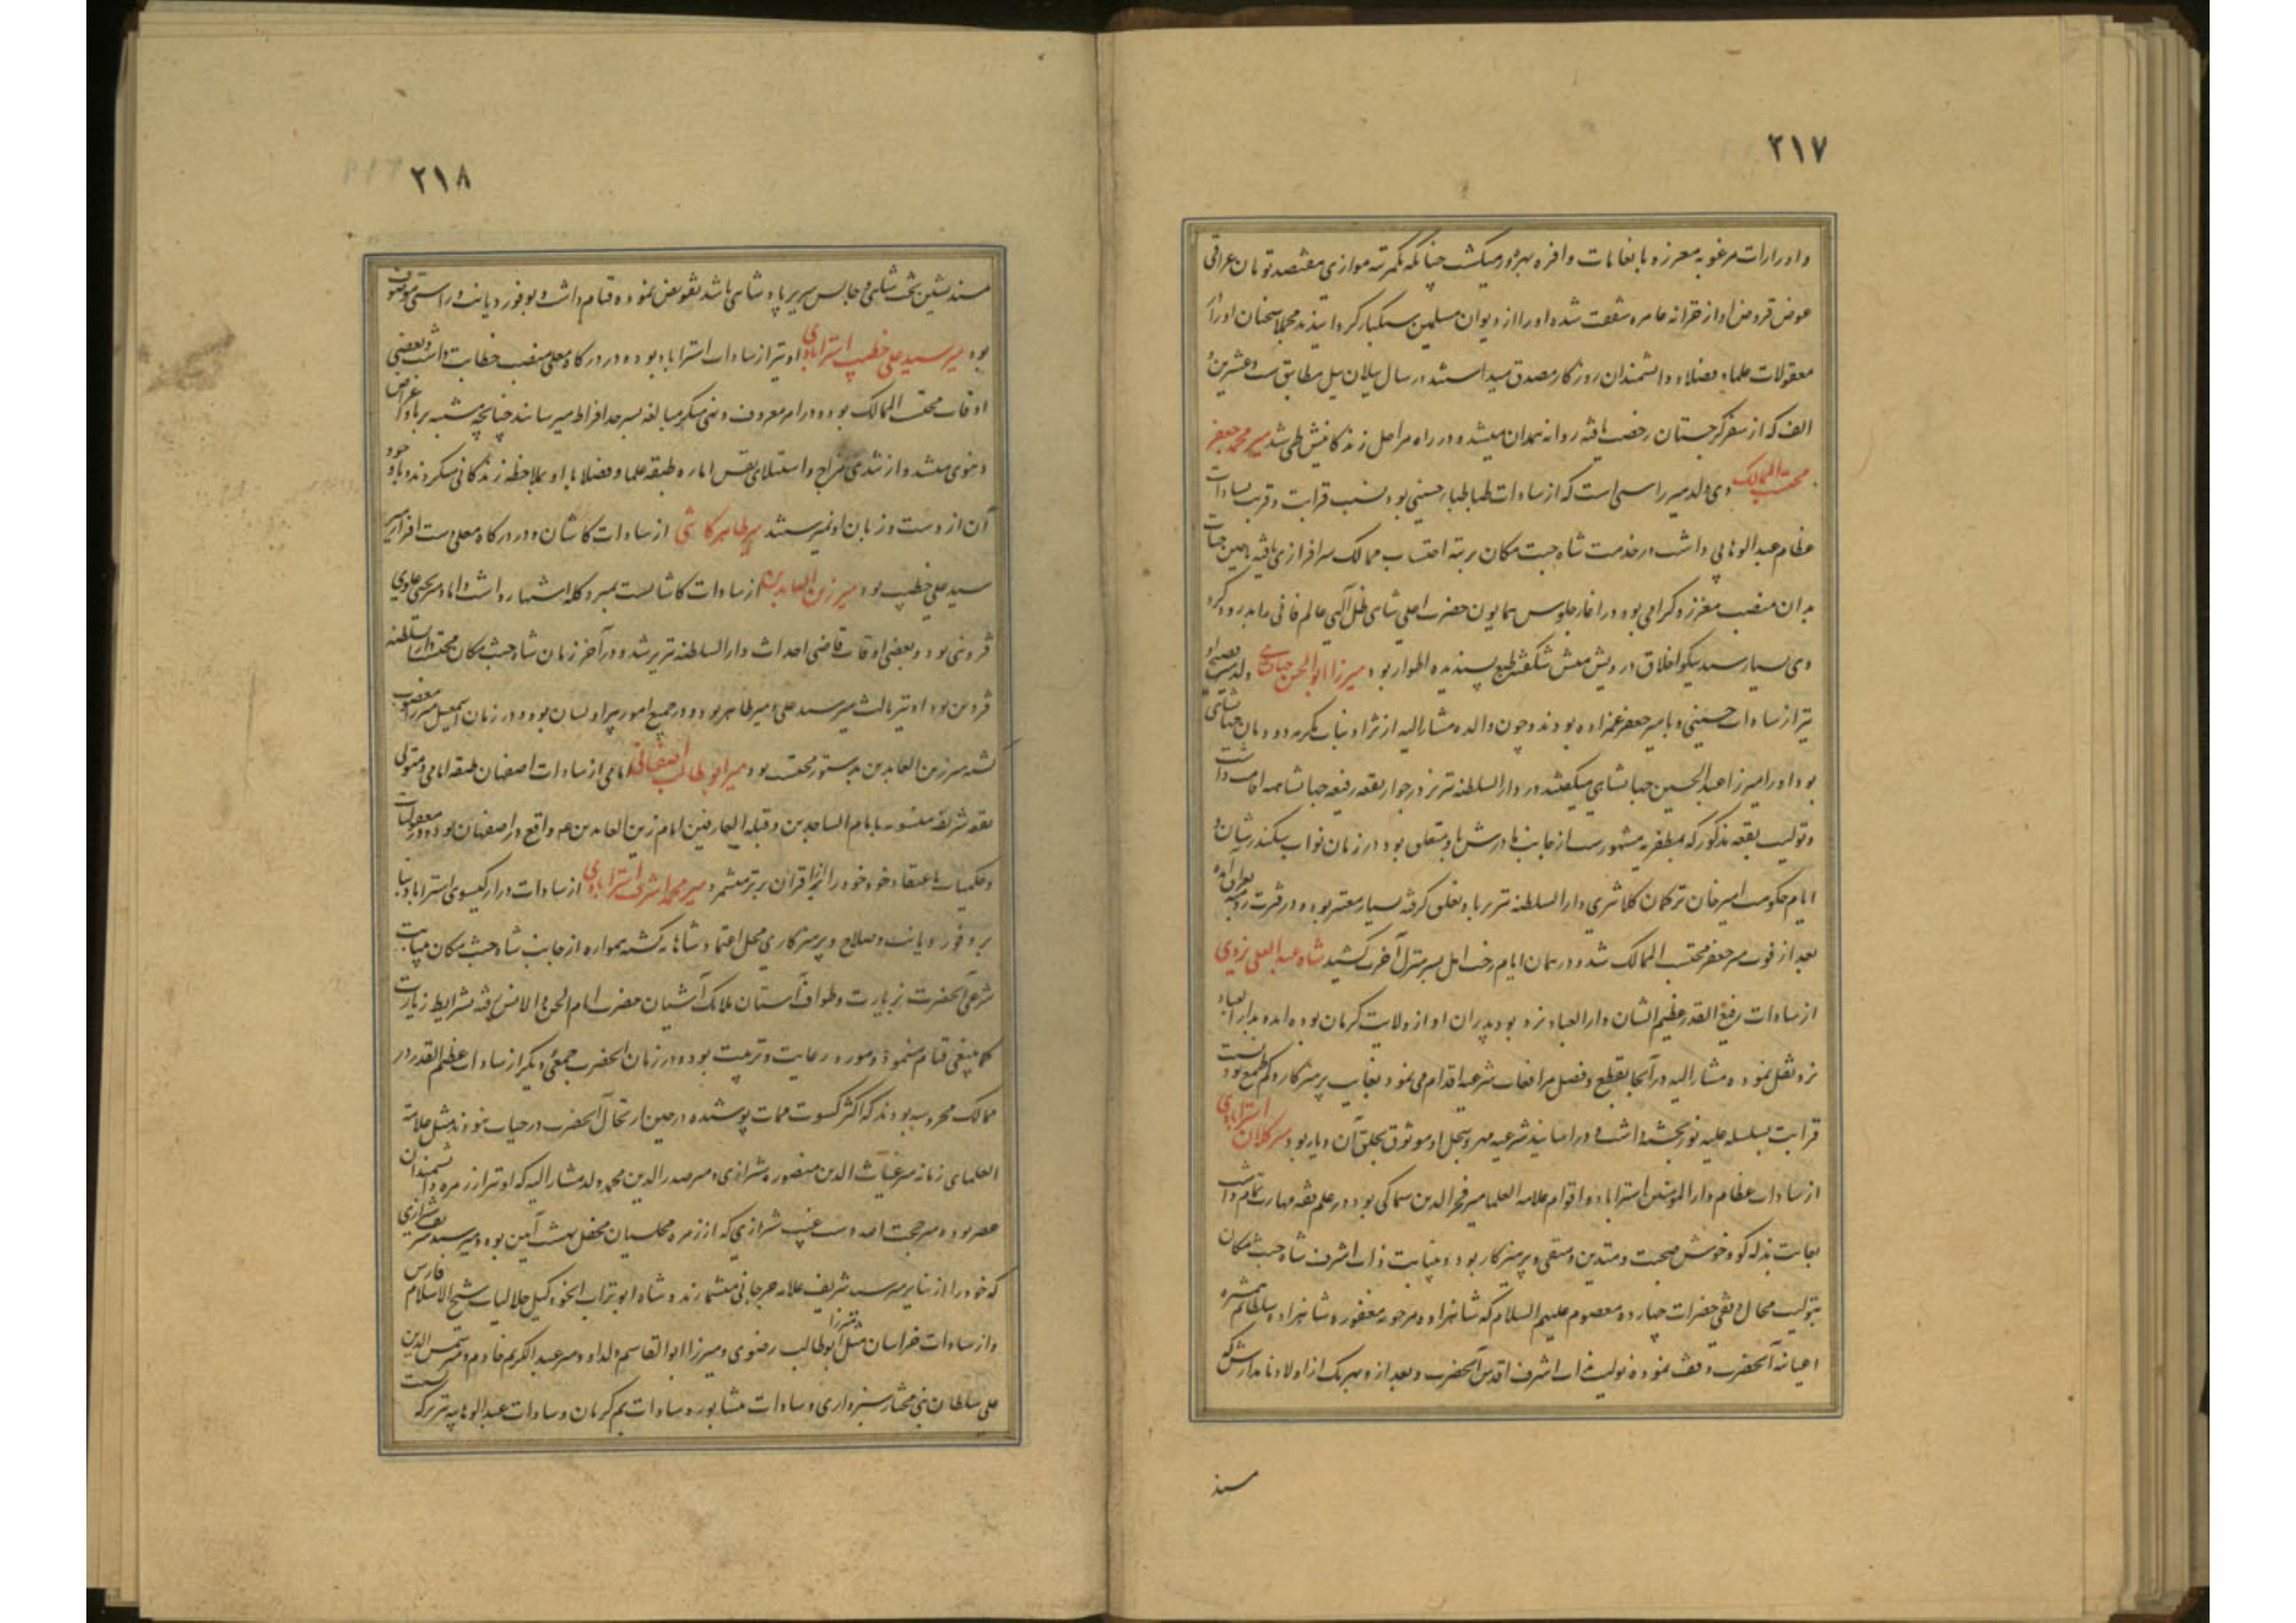 ۲۱۷
وادرارات مرغوبه معزز و با نعامات وافره بهره ور میکشت چنانکه یکمرتبه موازی هفتصد تومان عراقی
عوض قروض او از خزانه عامره شفقت شده او را از دیوان مسلمین سبکبار کردانیدند مجملا سخنان او را از
معقولات علما و فضلا و دانشمندان روزکار مصدق میداستند در سال ییلان ییل مطابق ست و عشرین و
الف که از سفر کرجستان رخصت یافته روانه همدان میشد و در راه مراحل زندکانیش طی شد میر محمد جعفر
محتسب الممالک وی ولد میر راستی است که از سادات طباطبا حسینی بود و نسب قرابت و قربت بسادات
عظام عبدالوهابی داشت در خدمت شاه جنت مکان برتبه احتساب ممالک سرافرازی یافته تا حین حیات
بدان منصب معزز و کرامی بود در اغاز جلوس همایون حضرت اعلی شاهی ظل آلهی عالم فانی را بدرود کرد
وی بسیار سید نیکو اخلاق درویش منش شکفته طبع پسندیده اطوار بود میرزا ابوالحسن جهانشاهی ولد میر فصیح او
نیز از سادات حسینی و با میر جعفر عمزاده بودند و چون والده مشارالیه از نژاد بنات مکرمه دودمان جهانشاهی
بود او را میرزا عبدالحسین جهانشاهی میکفتند در دارالسلطنه تبریز در جوار بقعه رفیعه جهانشاهیه اقامت داشت
و تولیت بقعه مذکور که بمظفریه مشهور است از جانب مادرش باو متعلق بود در زمان نواب سکندر شان و
ایام حکومت امیر خان ترکمان کلانتری دارالسلطنه تبریز باو تعلق کرفته بسیار معتبر بود و در فترت رومیه بعراق آمده
بعد از فوت میر جعفر محتسب الممالک شد و در همان ایام رخت اجل بسر منزل آخرت کشید شاه عبدالعلی یزدی
از سادات رفیع القدر عظیم الشان دارالعباد یزد بود پدران او از ولایت کرمان بوده آمده بدارالعباد
یزد نقل نموده مشارالیه در آنجا بقطع و فصل مرافعات شرعیه اقدام می نمود بغایت پرهیزکار و کم طمع بود نسبت
قرابت بسلسله علیه نوربخشیه داشت و در اسانید شرعیه مهر و سجل او موثوق به خلق آن دیار بود میر کلان استرابادی
از سادات عظام دارالمؤمنین استراباد و اقوام علامه العلما میر فخرالدین سماکی بود در علم فقه مهارت تمام داشت
بغایت بذله کو و خوش صحبت و متدین و متقی و پرهیزکار بود و بنیابت ذات اشرف شاه جنت مکان
بتولیت محال وقفی حضرات چهارده معصوم علیهم السلام که شاهزاده مرحومه مغفوره شاهزاده سلطانم همشیره
اعیانه آنحضرت وقف نموده تولیت بذات اشرف اقدس آنحضرت و بعد از و بهر یک از اولاد نامدارش که
مسند
۲۱۸
مسند نشین تخت شاهی و جالس سریر پادشاهی باشد تفویض نموده قیام داشت و بوفور دیانت و راستی موصوف
بود میر سید علی خطیب استرابادی او نیز از سادات استراباد بوده در درکاه معلی منصب خطابت داشت و بعضی
اوقات محتسب الممالک بود و در امر معروف و نهی منکر مبالغه بسرحد افراط میرسانید چنانچه مشتبه بریا و اعراض
دنیوی میشد و از تندی مزاج و استیلای نفس اماره طبقه علما و فضلا با او بملاحظه زندکانی میکردند و با وجود
آن از دست و زبان او نمیرستند میر طاهر کاشی از سادات کاشان و در درکاه معلی دست افزار میر
سید علی خطیب بود میر زین العابدین از سادات کاشانست بمیر دکله اشتهار داشت داماد میر یحیی علوی
قزوینی بود و بعضی اوقات قاضی احداث دارالسلطنه تبریز شد و در آخر زمان شاه جنت مکان محتسب دارالسلطنه
قزوین بود او نیز ثالث میر سید علی و میر طاهر بود و در جمیع امور پیرو ایشان بود و در زمان اسمعیل میرزا مغضوب
کشته میر زین العابدین بدستور محتسب بود میر ابوطالب اصفهانی امامی از سادات اصفهان طبقه امامی و متولی
بقعه شریفه منسوبه بامام الساجدین و قبله العارفین امام زین العابدین ع واقع در اصفهان بود و در معقولات
و حکمیات باعتقاد خود خود را از اقران برتر میشمرد میر محمد اشرف استرابادی از سادات دراز کیسوی استراباد بنا
بر وفور دیانت و صلاح و پرهیزکاری محل اعتماد شاهانه کشته همواره از جانب شاه جنت مکان بنیابت
شرعی آنحضرت بزیارت و طواف آستان ملائک آشیان حضرت امام الجن و الانس رفته بشرایط زیارت
کما ینبغی قیام مینمود و مورد رعایت و تربیت بود و در زمان آنحضرت جمعی دیکر از سادات عظیم القدر در
ممالک محروسه بودند که اکثر کسوت ممات پوشیده در حین ارتحال آنحضرت در حیات نبودند مثل علامة
العلمای زمانه میر غیاث الدین منصور شیرازی و میر صدرالدین محمد ولد مشارالیه که او نیز از زمره دانشمندان
عصر بود و میر حجت الله دست غیب شیرازی که از زمره مجلسیان محفل بهشت آیین بود و میر سید شریف شیرازی
که خود را از نبایر میر سید شریف علامه جرجانی میشمارند و شاه ابوتراب انجو و کیل جلالیات شیخ الاسلام فارس
و از سادات خراسان مثل میرزا ابوطالب رضوی و میرزا ابوالقاسم ولد او و میر عبدالکریم خادم و میر شمس الدین
علی سلطان بنی مختار سبزواری و سادات نیشابور و سادات بم کرمان و سادات عبدالوهابیه تبریز که